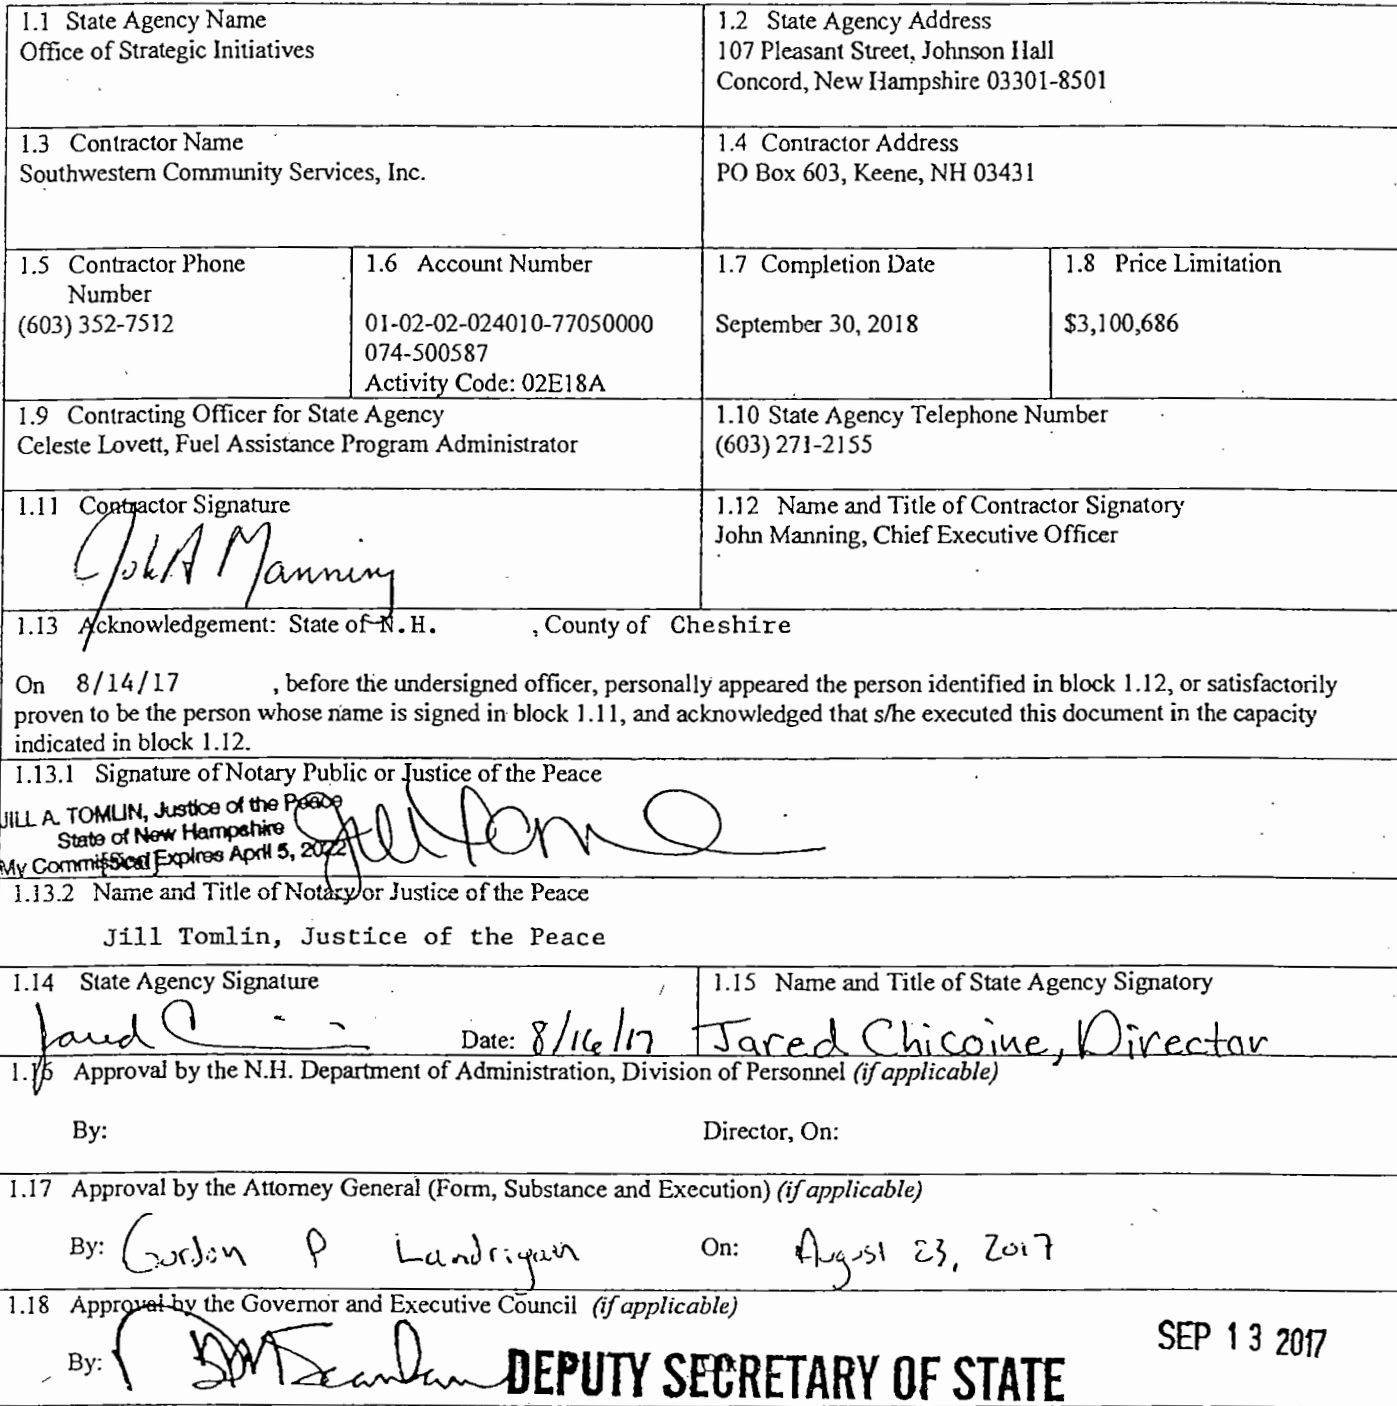 1.1 State Agency Name
Office of Strategic Initiatives
1.2 State Agency Address
107 Pleasant Street, Johnson Hall
Concord, New Hampshire 03301-8501
1.3 Contractor Name
Southwestern Community Services, Inc.
1.4 Contractor Address
PO Box 603, Keene, NH 03431
1.5 Contractor Phone
Number
(603) 352-7512
1.6 Account Number
01-02-02-024010-77050000
074-500587
Activity Code: 02E18A
1.7 Completion Date
September 30, 2018
1.8 Price Limitation
$3,100,686
1.9 Contracting Officer for State Agency
Celeste Lovett, Fuel Assistance Program Administrator
1.10 State Agency Telephone Number
(603) 271-2155
1.11 Contractor Signature
John A Manning
1.12 Name and Title of Contractor Signatory
John Manning, Chief Executive Officer
1.13 Acknowledgement: State of N.H. , County of Cheshire
On 8/14/17 , before the undersigned officer, personally appeared the person identified in block 1.12, or satisfactorily
proven to be the person whose name is signed in block 1.11, and acknowledged that s/he executed this document in the capacity
indicated in block 1.12.
1.13.1 Signature of Notary Public or Justice of the Peace
JILL A. TOMLIN, Justice of the Peace
State of New Hampshire
My Commission Expires April 5, 2022
[Seal]
1.13.2 Name and Title of Notary or Justice of the Peace
Jill Tomlin, Justice of the Peace
1.14 State Agency Signature
Jared Date: 8/16/17
1.15 Name and Title of State Agency Signatory
Jared Chicoine, Director
1.16 Approval by the N.H. Department of Administration, Division of Personnel (if applicable)
By: Director, On:
1.17 Approval by the Attorney General (Form, Substance and Execution) (if applicable)
By: Gordon P Landrigan On: August 23, 2017
1.18 Approval by the Governor and Executive Council (if applicable)
By: DEPUTY SECRETARY OF STATE
SEP 13 2017